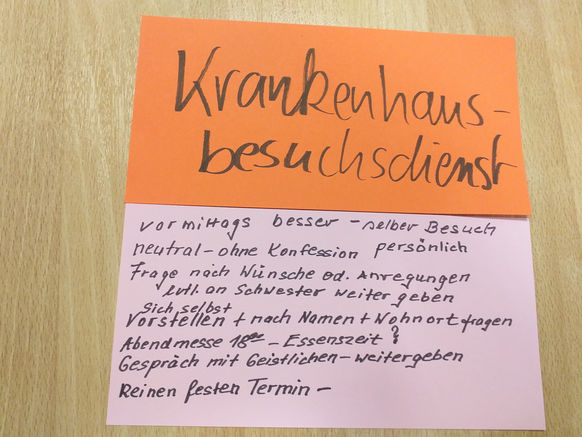 Krankenhaus-
besuchsdienst
vormittags besser - selber Besuch
neutral - ohne Konfession persönlich
Frage nach Wünsche od. Anregungen
evtl. an Schwester weiter geben
Sich selbst
vorstellen + nach Namen + Wohnort fragen
Abendmesse 18ººº - Essenszeit?
Gespräch mit Geistlichen - weitergeben
Keinen festen Termin -